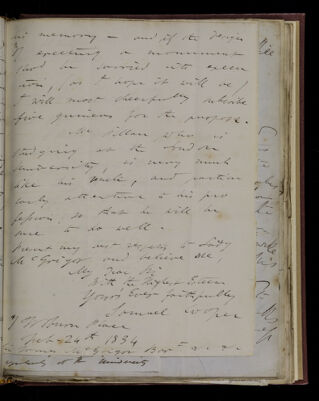 his memory — and if the design
of erecting a monument
shod be carried into execu
tion, (as I hope it will be,)
I will most cheerfully subscribe
five guineas for the purpose.
Mr Dillon who is
studying at the London
University, is very much
like his uncle, and particu
larly attentive to his pro
fession; so that he will be
sure to do well.
Present my best regards to Lady
McGrigor and believe me,
My Dear Sir
With the highest Esteem
Yours Ever faithfully
Samuel Cooper
7 Woburn Place
Feb 24th 1834
James McGrigor Bart
at the University